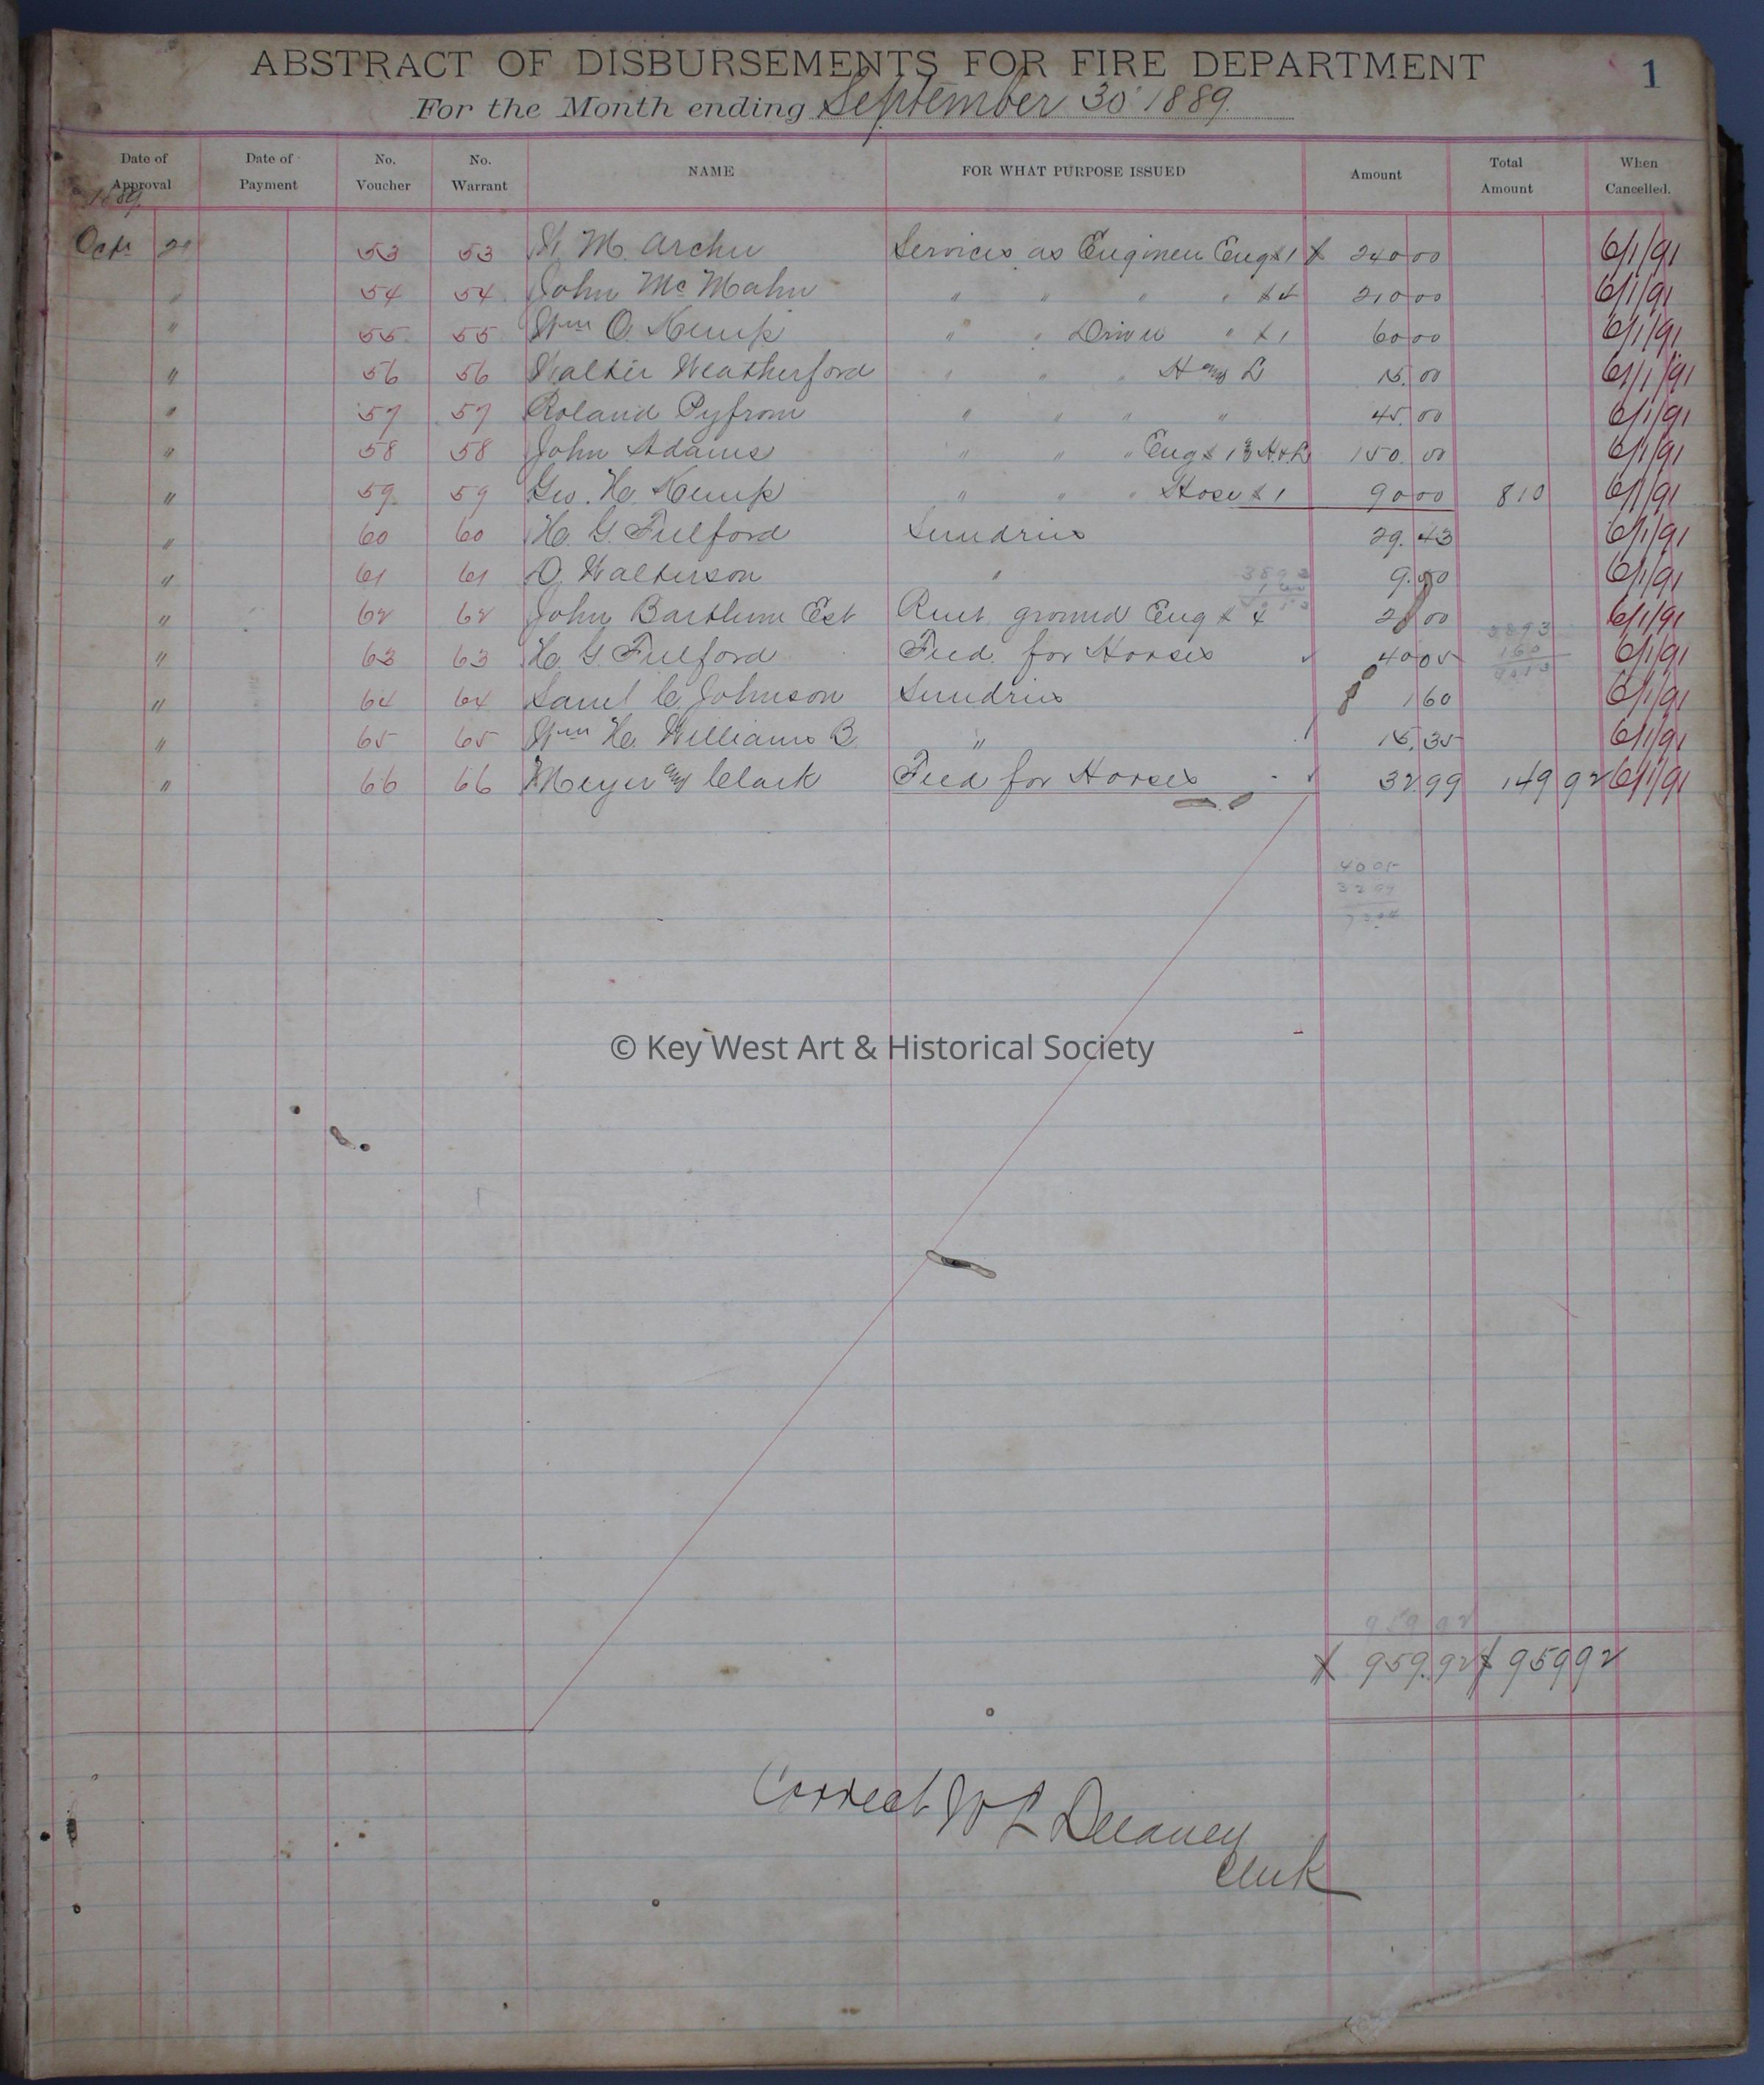 ABSTRACT OF DISBURSEMENTS FOR FIRE DEPARTMENT 1
For the Month ending September 30 1889.
Date of Approval Date of Payment No. Voucher No. Warrant NAME FOR WHAT PURPOSE ISSUED Amount Total Amount When Cancelled.
1889.
Oct 21 53 53 W. M. Archer Services as Engineer Eng # 1 $ 240 00 6/1/91
" 54 54 John McMahn " " " " # 4 210 00 6/1/91
" 55 55 Wm O. Kemp " " Driver " # 1 60 00 6/1/91
" 56 56 Walter Weatherford " " " H and L 15.00 6/1/91
" 57 57 Roland Pyfrom " " " " 45.00 6/1/91
" 58 58 John Adams " " " Eng # 1 & H & L 150.00 6/1/91
" 59 59 Geo. H. Kemp " " " Hose # 1 90 00 810 6/1/91
" 60 60 H. G. Fulford Sundries 29.43 6/1/91
" 61 61 O. Walterson " 9.50 6/1/91
" 62 62 John Bartlum Est Rent ground Eng # 4 21 00 6/1/91
" 63 63 H. G. Fulford Feed for Horses 40 05 6/1/91
" 64 64 Saml C. Johnson Sundries 1 60 6/1/91
" 65 65 Wm H. Williams B. " 15.35 6/1/91
" 66 66 Meyer and Clark Feed for Horses 32.99 149 92 6/1/91
40 05
32 99
73 04
© Key West Art & Historical Society
959 92
$ 959.92 $ 959 92
Correct W L Delaney
Clerk